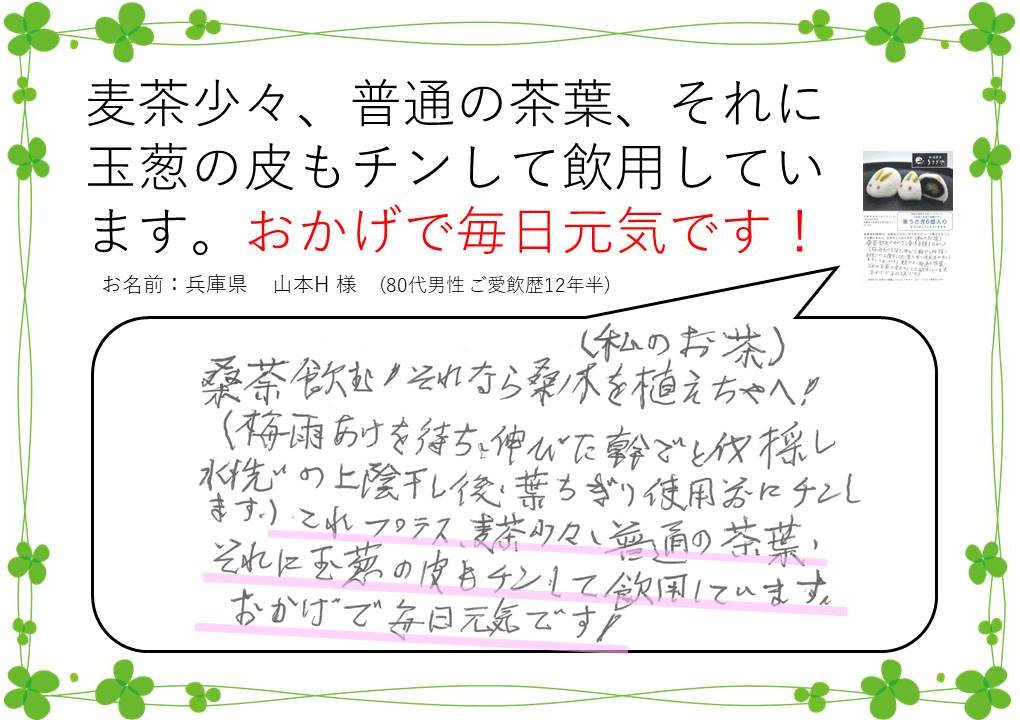 麦茶少々、普通の茶葉、それに
玉葱の皮もチンして飲用してい
ます。おかげで毎日元気です！
お名前：兵庫県　山本H 様　(80代男性 ご愛飲歴12年半)
(私のお茶)
桑茶飲む！それなら桑ノ木を植えちゃへ！
(梅雨あけを待ち、伸びた幹ごと伐採し
水洗いの上陰干し後、葉ちぎり使用前にチンし
ます。) これプラス、麦茶少々、普通の茶葉、
それに玉葱の皮もチンして飲用しています。
おかげで毎日元気です！